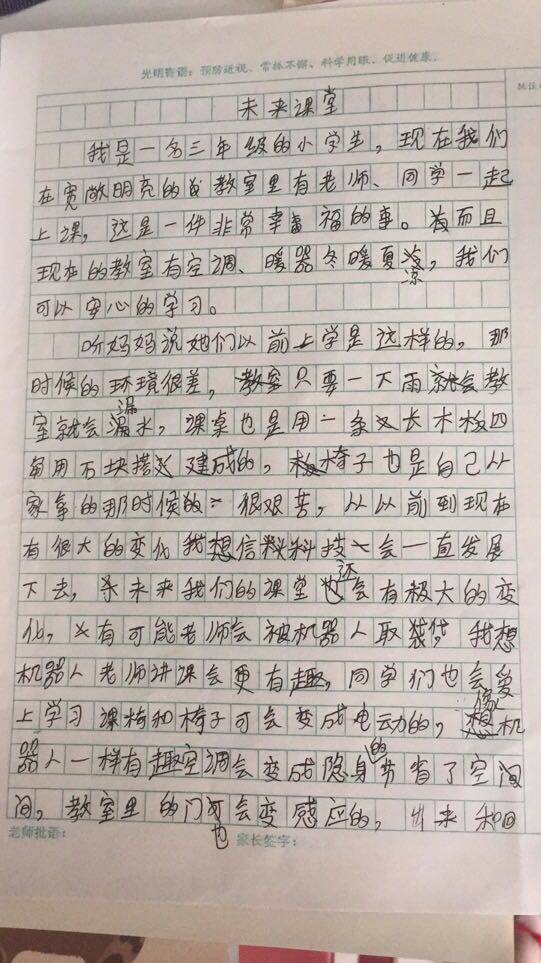 光明寄语：预防近视、常抓不懈、科学用眼、促进健康。
批注
未来课堂
我是一名三年级的小学生，现在我们
在宽敞明亮的教室里有老师、同学一起
上课，这是一件非常幸福的事。而且
现在的教室有空调、暖器冬暖夏凉，我们
可以安心的学习。
听妈妈说她们以前上学是这样的，那
时候的环境很差，教室只要一下雨就会教
室就会漏水，课桌也是用一条长木板四
角用石块搭建成的，椅子也是自己从
家拿的那时候的一很艰苦，从以前到现在
有很大的变化我想信科技会一直发展
下去，未来我们的课堂还会有极大的变
化，有可能老师会被机器人取代，我想
机器人老师讲课会更有趣，同学们也会爱
上学习课椅和椅子可会变成电动的，像机
器人一样有趣空调会变成隐身的节省了空间
间，教室里的门也会变感应的，出来和回
老师批语：
家长签字：